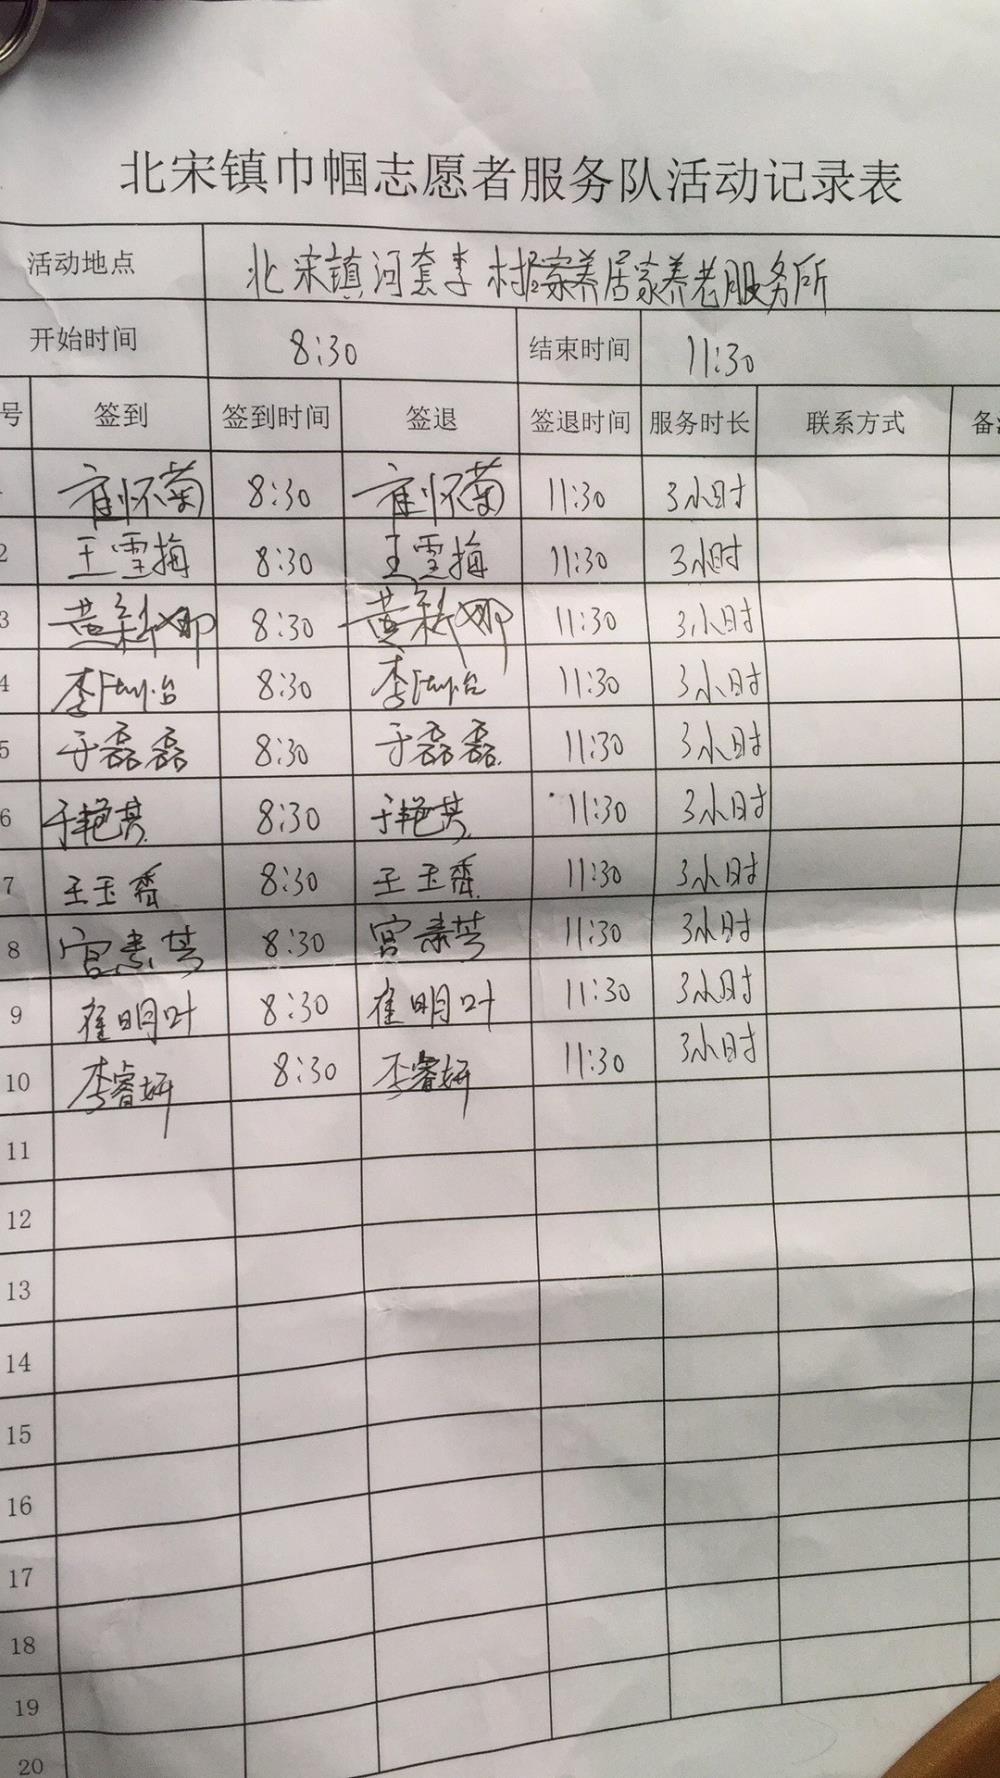 北宋镇巾帼志愿者服务队活动记录表
活动地点 北宋镇河套李村居家养老服务所
开始时间 8:30 结束时间 11:30
号 签到 签到时间 签退 签退时间 服务时长 联系方式 备注
崔怀菊 8:30 崔怀菊 11:30 3小时
2 王雪梅 8:30 王雪梅 11:30 3小时
3 黄新娜 8:30 黄新娜 11:30 3小时
4 李 8:30 李 11:30 3小时
5 于磊磊 8:30 于磊磊 11:30 3小时
6 于艳其 8:30 于艳其 11:30 3小时
7 王玉香 8:30 王玉香 11:30 3小时
8 宫素芳 8:30 宫素芳 11:30 3小时
9 崔明叶 8:30 崔明叶 11:30 3小时
10 李睿妍 8:30 李睿妍 11:30 3小时
11
12
13
14
15
16
17
18
19
20